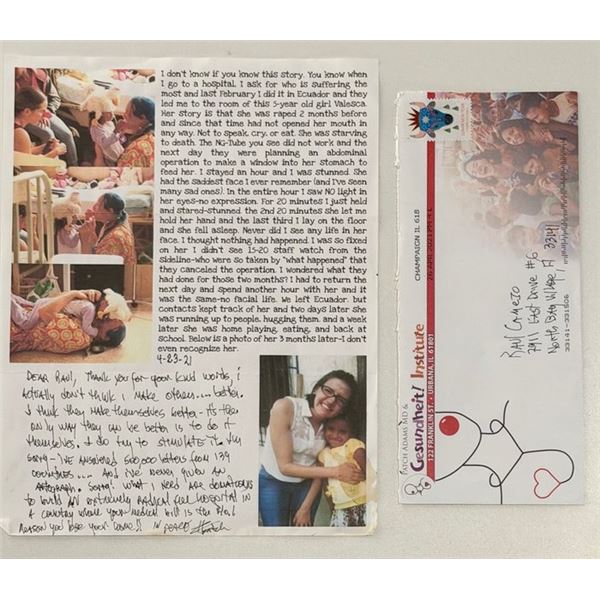 I don't know if you know this story. You know when
I go to a hospital, I ask for who is suffering the
most and last February I did it in Ecuador and they
led me to the room of this 5-year old girl Valesca.
Her story is that she was raped 2 months before
and since that time had not opened her mouth in
any way. Not to speak, cry, or eat. She was starving
to death. The NG-Tube you see did not work and the
next day they were planning an abdominal
operation to make a window into her stomach to
feed her. I stayed an hour and I was stunned. She
had the saddest face I ever remember (and I've seen
many sad ones). In the entire hour I saw NO light in
her eyes-no expression. For 20 minutes I just held
and stared-stunned, the 2nd 20 minutes she let me
hold her hand and the last third I lay on the floor
and she fell asleep. Never did I see any life in her
face. I thought nothing had happened. I was so fixed
on her I didn't see 15-20 staff watch from the
sideline-who were so taken by "what happened" that
they canceled the operation. I wondered what they
had done for those two months! I had to return the
next day and spend another hour with her and it
was the same-no facial life. We left Ecuador, but
contacts kept track of her and two days later she
was running up to people, hugging them, and a week
later she was home playing, eating, and back at
school. Below is a photo of her 3 months later-I don't
even recognize her.
4-23-21
Dear Raul, Thank you for your kind words, i
actually don't think i make others.... better.
I think they make themselves better - it's their
only way they can be better is to do it
themselves. I do try to stimulate it. I'm
sorry - I've answered 600,000 letters from 139
countries... and I've never given an
autograph. Sorry. What i need are donations
to build an extremely radical free hospital in
a country where your medical bill is the #1
reason you lose your home!! in peace,
CHAMPAIGN IL 618
26 APR 2021 PM
PATCH ADAMS MD &
Gesundheit! Institute
122 FRANKLIN ST. • URBANA, IL 61801
Raul
7911 East Drive #6
North Bay Village, Fl 33141
33141-331506